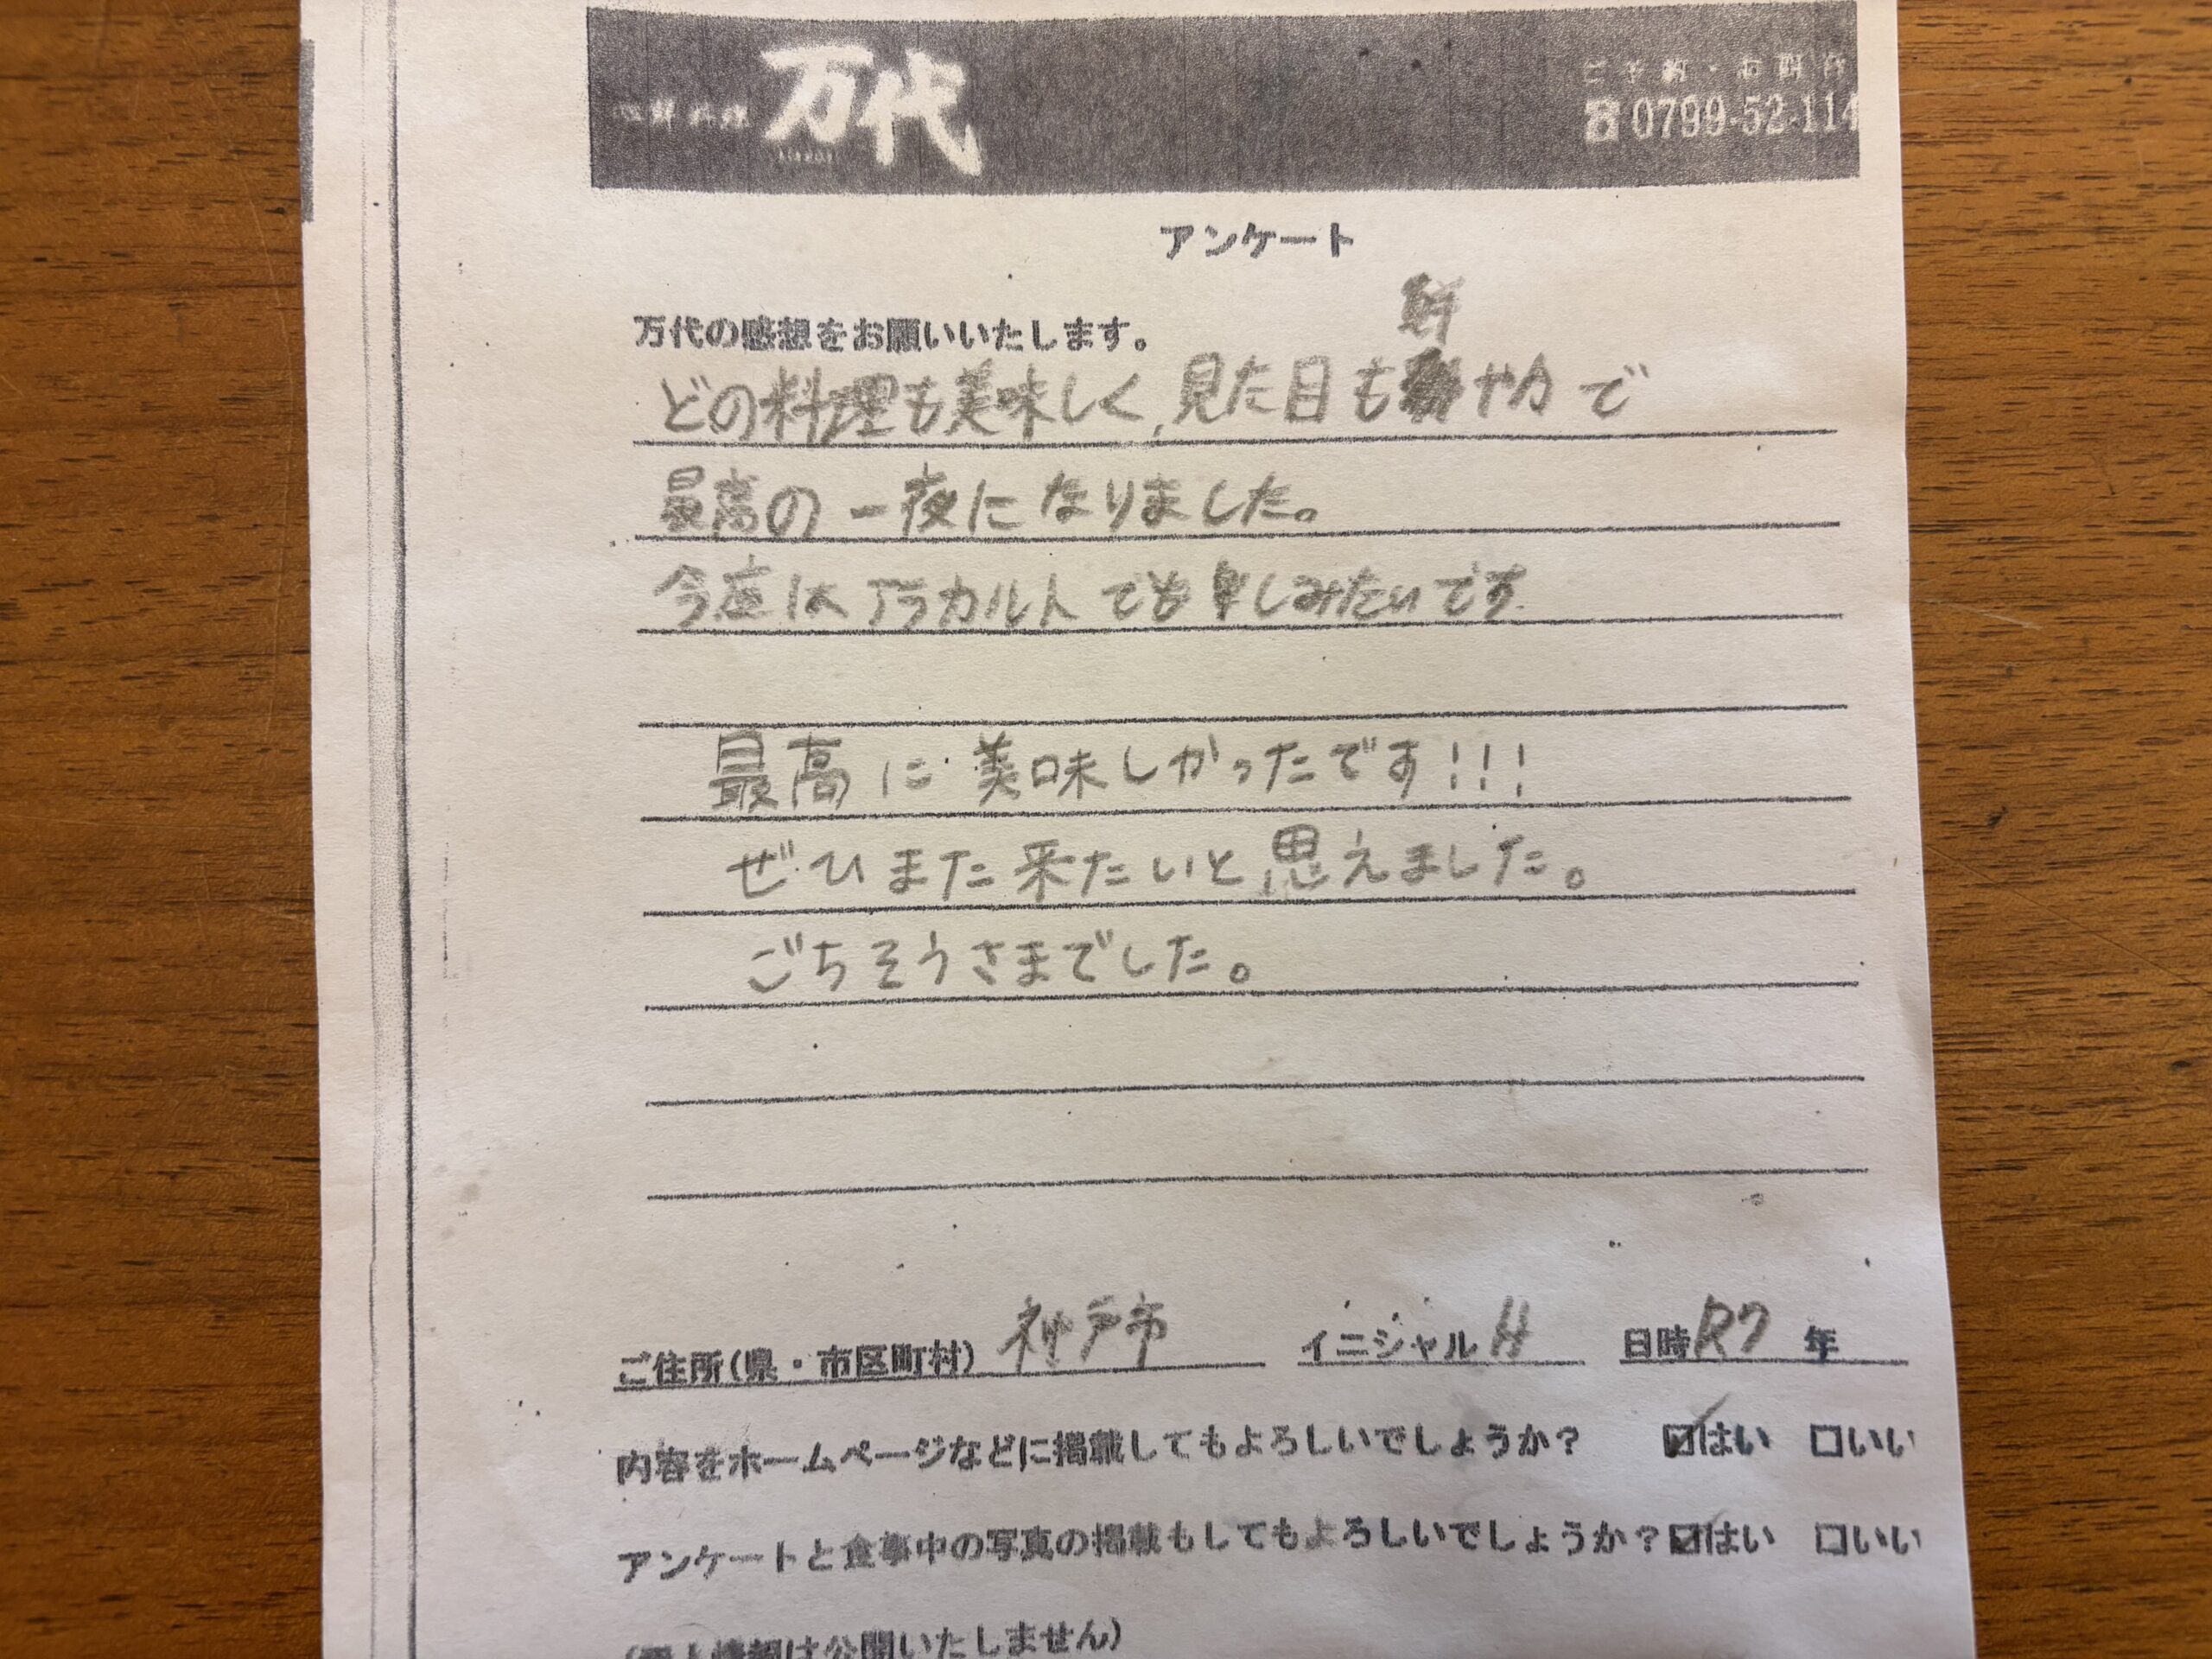 万代
ご予約・お問合
☎0799-52-114
アンケート
万代の感想をお願いいたします。
どの料理も美味しく、見た目も鮮やかで
最高の一夜になりました。
今度はアラカルトでも楽しみたいです
最高に美味しかったです!!!
ぜひまた来たいと思えました。
ごちそうさまでした。
ご住所(県・市区町村) 神戸市 イニシャル H 日時 R7 年
内容をホームページなどに掲載してもよろしいでしょうか? ☑はい □いい
アンケートと食事中の写真の掲載もしてもよろしいでしょうか?☑はい □いい
は公開いたしません)